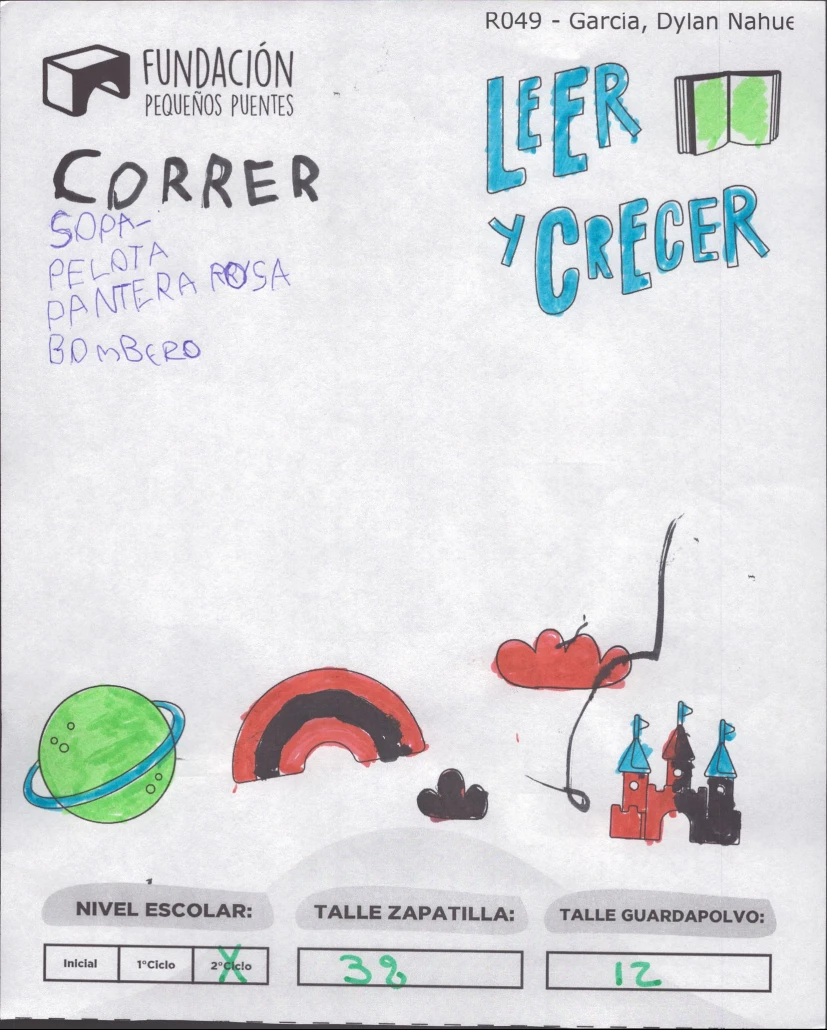 R049 - Garcia, Dylan Nahue
FUNDACIÓN
PEQUEÑOS PUENTES
LEER
Y CRECER
CORRER
SOPA-
PELOTA
PANTERA ROSA
BOMBERO
NIVEL ESCOLAR:
Inicial
1°Ciclo
2°Ciclo
X
TALLE ZAPATILLA:
38
TALLE GUARDAPOLVO:
12